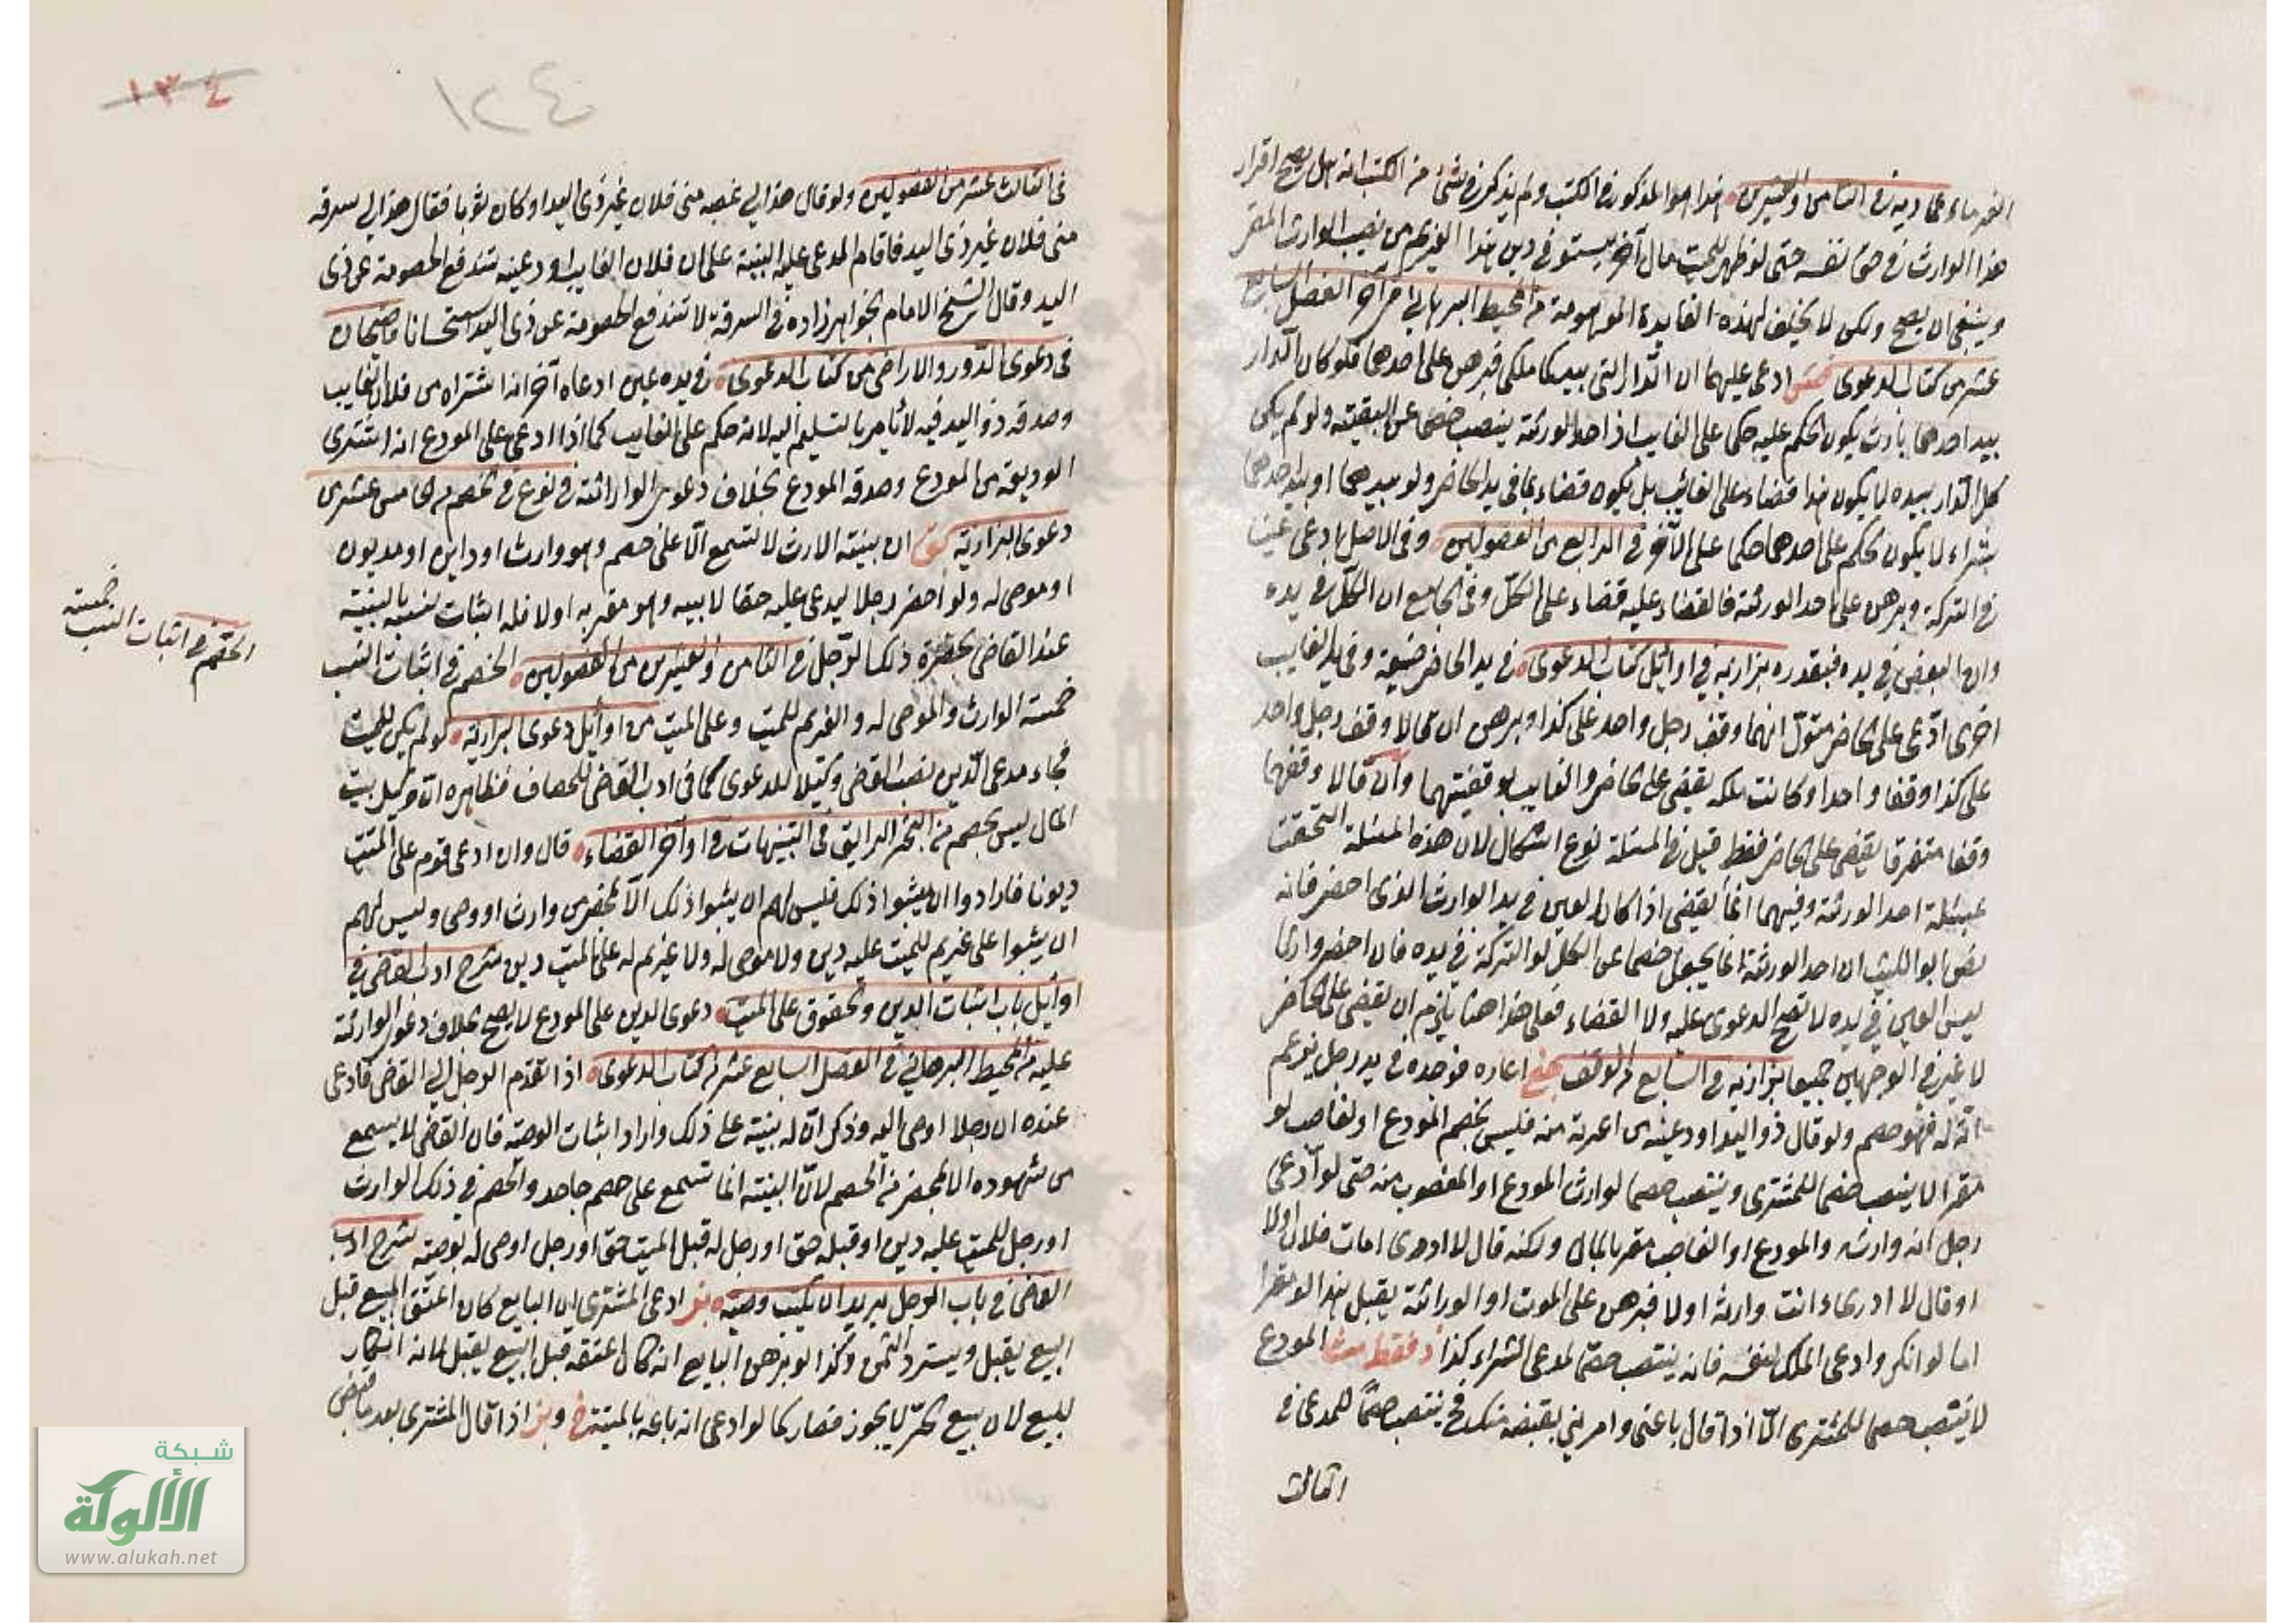 الغرماء عمادية في الثامن والعشرين هذا هو المذكور في الكتب ولم يذكر في شئ من الكتب انه هل يصح اقرار
هذا الوارث في حق نفسه حتى لو ظهر للميت مال آخر يستوفي دين هذا الغريم من نصيب الوارث المقر
وينبغي ان يصح ولكن لا يحلف لهذه الفايدة الموهومة من المحيط البرهاني من آخر الفصل السابع
عشر من كتاب الدعوى ادعى عليهما ان الدار التي بيدكما ملكي فبرهن على احدهما فلو كان الدار
بيد احدهما بارث يكون الحكم عليه حكما على الغايب اذ احد الورثة ينتصب خصما عن البقية ولو لم يكن
كل الدار بيده لا يكون هذا قضاء على الغائب بل يكون قضاء بما في يد الحاضر ولو بيدهما او بيد احدهما
بشراء لا يكون الحكم على احدهما حكما على الآخر في الرابع من الفصولين وفي الاصل ادعى عينا
في التركة وبرهن على احد الورثة فالقضاء عليه قضاء على الكل وفي الجامع ان الكل في يده
وان البعض في يده فبقدره بزازية في اوائل كتاب الدعوى في يد الحاضر ضيعة وفي يد الغايب
اخرى ادعى على الحاضر متول انهما وقف رجل واحد على كذا وبرهن ان قالا وقف رجل واحد
على كذا وقفا واحدا وكانت ملكه يقضي على الحاضر والغايب بوقفيتهما وان قالا وقفهما
وقفا متفرقا يقضي على الحاضر فقط قيل في المسئلة نوع اشكال لان هذه المسئلة التحقت
بمسئلة احد الورثة وفيهما انما يقضي اذا كان العين في يد الوارث الذي احضر فانه
نص ابو الليث ان احد الورثة انما يجعل خصما عن الكل لو التركة في يده فان احضر وارثا
ليس العين في يده لا تصح الدعوى عليه ولا القضاء فعلى هذا هنا يلزم ان يقضي على الحاضر
لا غير في الوجهين جميعا بزازية في السابع من الوقف اعاره فوجده في يد رجل يزعم
انه له فهو خصم ولو قال ذو اليد اودعنيه من اعرته منه فليس بخصم المودع او الغاصب لو
مقرا لا ينتصب خصما للمشتري وينتصب خصما لوارث المودع او المغصوب منه حتى لو ادعى
رجل انه وارثه والمودع او الغاصب مقر بالمال ولكنه قال لا ادري امات فلان او لا
او قال لا ادري اانت وارثه او لا فبرهن على الموت او الوراثة يقبل هذا لو مقرا
اما لو انكر وادعى الملك لنفسه فانه ينتصب خصما لمدعي الشراء كذا فقط المودع
لا ينتصب خصما للمشتري الا اذا قال باعني وامرني بقبضه منك فح ينتصب خصما للمدعي في
الثالث
١٣٤
١٢٤
في الثالث عشر من الفصولين ولو قال هذا لي غصبه مني فلان غير ذي اليد او كان ثوبا فقال هذا لي سرقه
مني فلان غير ذي اليد فاقام المدعى عليه البينة على ان فلان الغايب اودعنيه تندفع الخصومة عن ذي
اليد وقال الشيخ الامام بخواهرزاده في السرقة لا تندفع الخصومة عن ذي اليد استحسانا قاضيخان
في دعوى الدور والاراضي من كتاب الدعوى في يده عين ادعاه آخر انه اشتراه من فلان الغايب
وصدقه ذو اليد فيه لا يأمر بالتسليم اليه لانه حكم على الغايب كما اذا ادعى على المودع انه اشترى
الوديعة من المودع وصدقه المودع بخلاف دعوى الوارثة في نوع في الخصم من الخامس عشر من
دعوى البزازية ان بينة الارث لا تسمع الا على خصم وهو وارث او داين او مديون
او موصى له ولو احضر رجلا ليدعي عليه حقا لابيه وهو مقر به او لا فله اثبات نسبه بالبينة
عند القاضي بحضرة ذلك الرجل في الثامن والعشرين من الفصولين الخصم في اثبات النسب
خمسة الوارث والموصى له والغريم للميت وعلى الميت من اوائل دعوى البزازية لو لم يكن للميت
فجاء مدعي الدين نصب القاضي وكيلا للدعوى كما في ادب القاضي للخصاف فظاهره ان وكيل بيت
المال ليس بخصم من البحر الرايق في التنبيهات في اواخر القضاء قال وان ادعى قوم على الميت
ديونا فارادوا ان يثبتوا ذلك فليس لهم ان يثبتوا ذلك الا بمحضر من وارث او وصي وليس لهم
ان يثبتوا على غريم للميت عليه دين ولا موصى له ولا غريم له على الميت دين شرح ادب القاضي في
اوائل باب اثبات الدين والحقوق على الميت دعوى الدين على المودع لا يصح بخلاف دعوى الوارثة
عليه من المحيط البرهاني في الفصل السابع عشر من كتاب الدعوى اذا تقدم الرجل الى القاضي فادعى
عنده ان رجلا اوصى اليه وذكر ان له بينة على ذلك واراد اثبات الوصية فان القاضي لا يسمع
من شهوده الا بمحضر من الخصم لان البينة انما تسمع على خصم جاحد والخصم في ذلك الوارث
او رجل للميت عليه دين او قبله حق او رجل له قبل الميت حق او رجل اوصى له بوصية شرح ادب
القاضي في باب الرجل يريد ان يكتب وصيته ادعى المشتري ان البايع كان اعتق المبيع قبل
البيع يقبل ويسترد الثمن وكذا لو برهن البايع انه كان اعتقه قبل البيع يقبل لانه انكار
للبيع لان بيع الحر لا يجوز فصار كما لو ادعى انه باعه بالميتة اذا قال المشتري بعد ما قبض
الخصم في اثبات النسب خمسة
شبكة
الألوكة
www.alukah.net